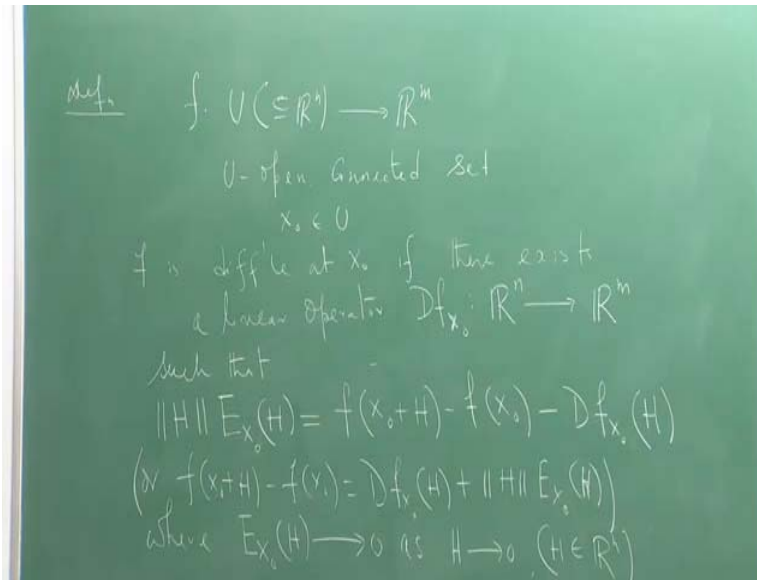 defn f: U(⊆ℝⁿ) ⟶ ℝᵐ
U - open connected set
X₀ ∈ U
f is diff'le at X₀ if there exists
a linear operator Df_{X₀}: ℝⁿ ⟶ ℝᵐ
such that
||H|| E_{X₀}(H) = f(X₀+H) - f(X₀) - Df_{X₀}(H)
(or f(X₀+H) - f(X₀) = Df_{X₀}(H) + ||H|| E_{X₀}(H))
where E_{X₀}(H) ⟶ 0 as H ⟶ 0 (H ∈ ℝⁿ)